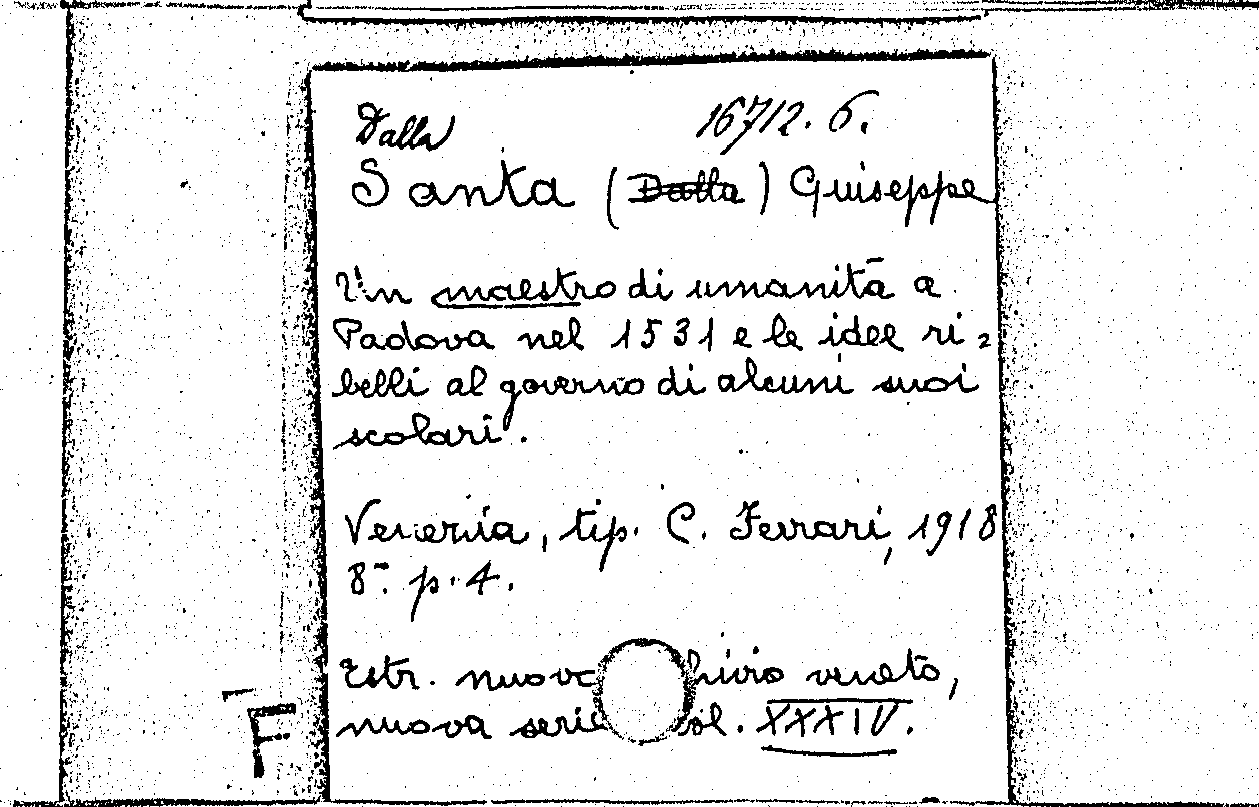 Dalla 16712. 6.
Santa (Dalla) Giuseppe
Un maestro di umanità a
Padova nel 1531 e le idee ri=
belli al governo di alcuni suoi
scolari.
Venezia, tip. C. Ferrari, 1918
8° p. 4.
Estr. nuovo hivio veneto,
nuova serie ol. XXXIV.
F